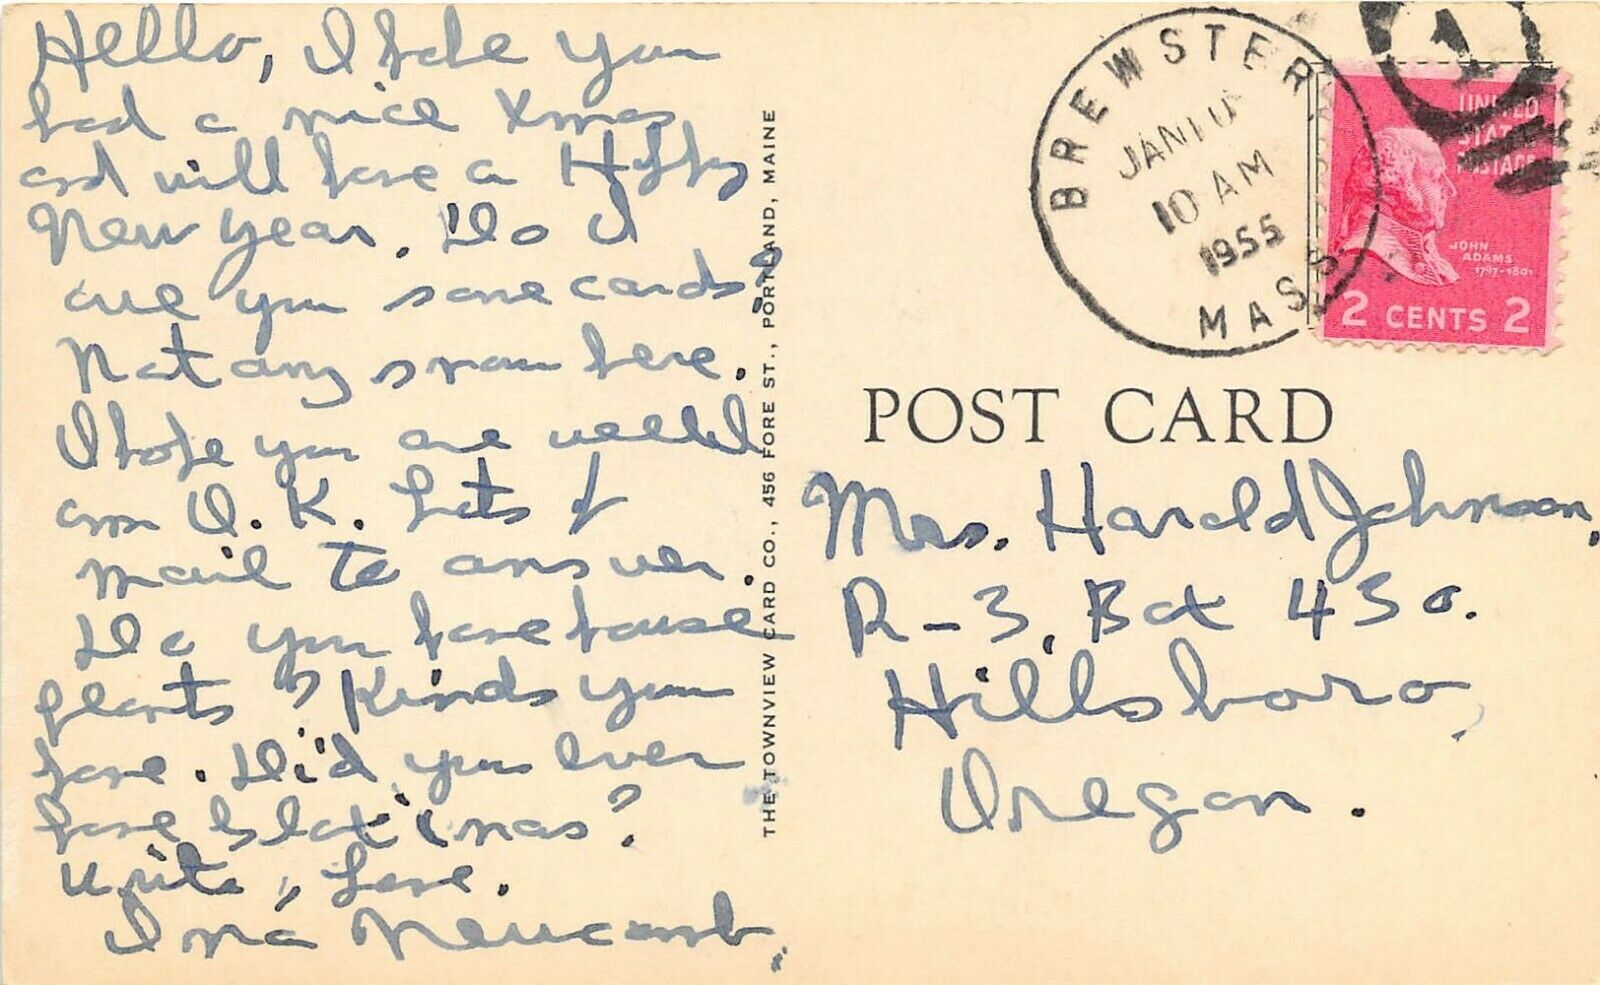 Hello, I hope you
had a nice Xmas
and will have a Happy
New Year. Do I
owe you some cards?
Not any snow here.
I hope you are well. I
am O.K. Lots of
mail to answer.
Do you have house
plants? Kinds you
have. Did you ever
have Gloxinias?
Write, Love.
Ina Newcomb,
THE TOWNVIEW CARD CO., 456 FORE ST., PORTLAND, MAINE
BREWSTER
JAN 10
10 AM
1955
MASS
1
UNITED
STATES
POSTAGE
JOHN
ADAMS
1797-1801
2 CENTS 2
POST CARD
Mrs. Harold Johnson,
R-3, Box 430.
Hillsboro,
Oregon.